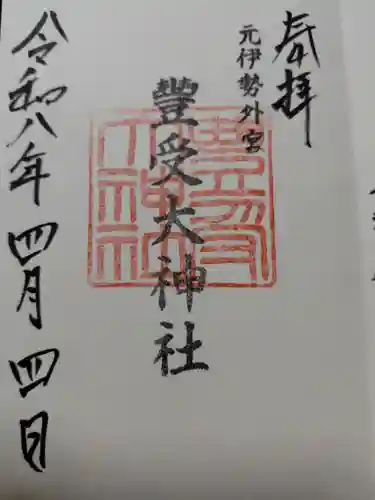 奉拝
元伊勢外宮
豐受大神社
令和八年四月四日